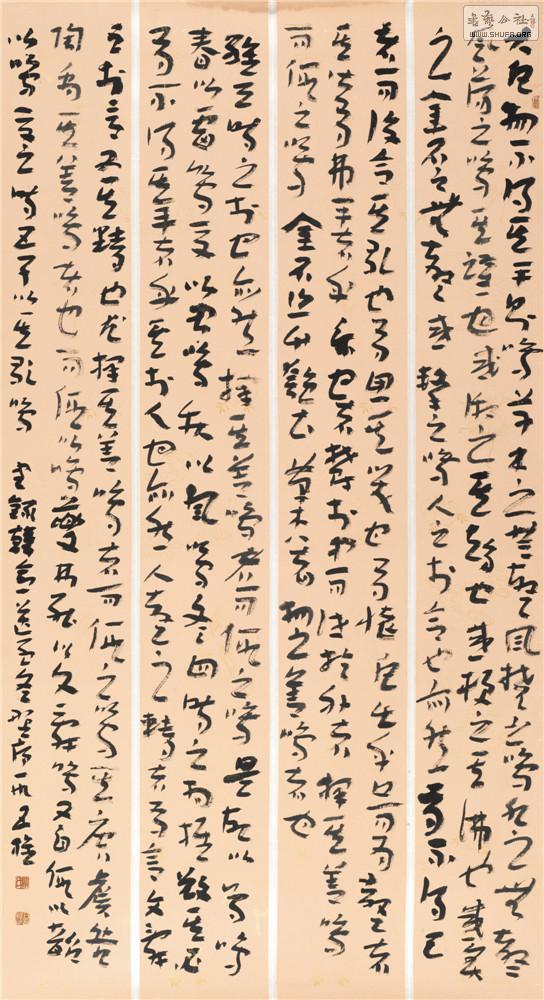 大凡物不得其平則鳴草木之無聲風撓之鳴水之無聲
風蕩之鳴其躍也或激之其趨也或梗之其沸也或炙
之金石之無聲或擊之鳴人之於言也亦然有不得已
者而後言其歌也有思其哭也有懷凡出乎口而為聲者
其皆有弗平者乎樂也者鬱於中而泄於外者擇其善鳴
而假之鳴金石絲竹匏土革木八者物之善鳴者也
維天之於時也亦然擇其善鳴者而假之鳴是故以鳥鳴
春以雷鳴夏以蟲鳴秋以風鳴冬四時之相推敚其必
有不得其平者乎其於人也亦然人聲之精者為言文辭
之於言又其精也尤擇其善鳴者而假之鳴其在唐虞咎
陶禹其善鳴者也而假以鳴夔弗能以文辭鳴又自假以韶
以鳴夏之時五子以其歌鳴 錄韓愈送孟東野序一
書藝公社
WWW.SHUFA.ORG